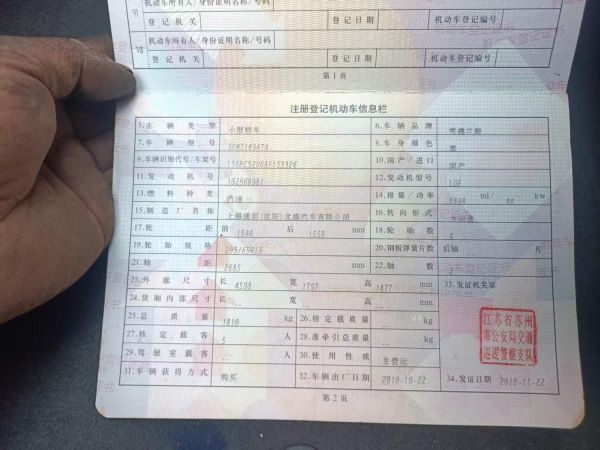 机动车所有人/身份证明名称/号码
登记机关 登记日期 机动车登记编号
机动车所有人/身份证明名称/号码
登记机关 登记日期 机动车登记编号
第1页
注册登记机动车信息栏
5.车辆类型 小型轿车 6.车辆品牌 雪佛兰牌
7.车辆型号 SGM7169ATA 8.车身颜色 黑
9.车辆识别代号/车架号 10.国产/进口 国产
11.发动机号 12.发动机型号 LDE
13.燃料种类 汽油 14.排量/功率 1598 ml/ 86 kw
15.制造厂名称 上海通用(沈阳)北盛汽车有限公司 16.转向形式
17.轮距 前 1544 后 1558 mm 18.轮胎数 4
19.轮胎规格 205/65R15 20.钢板弹簧片数 后轴 片
21.轴距 2685 mm 22.轴数 2
23.外廓尺寸 长 4598 宽 1797 高 1477 mm 33.发证机关章
24.货厢内部尺寸 长 宽 高 mm
25.总质量 1810 kg 26.核定载质量 kg
27.核定载客 5 人 28.准牵引总质量 kg
29.驾驶室载客 人 30.使用性质 非营运
江苏省苏州
市公安局交通
巡逻警察支队
31.车辆获得方式 购买 32.车辆出厂日期 2010-10-22 34.发证日期 2010-11-22
第2页